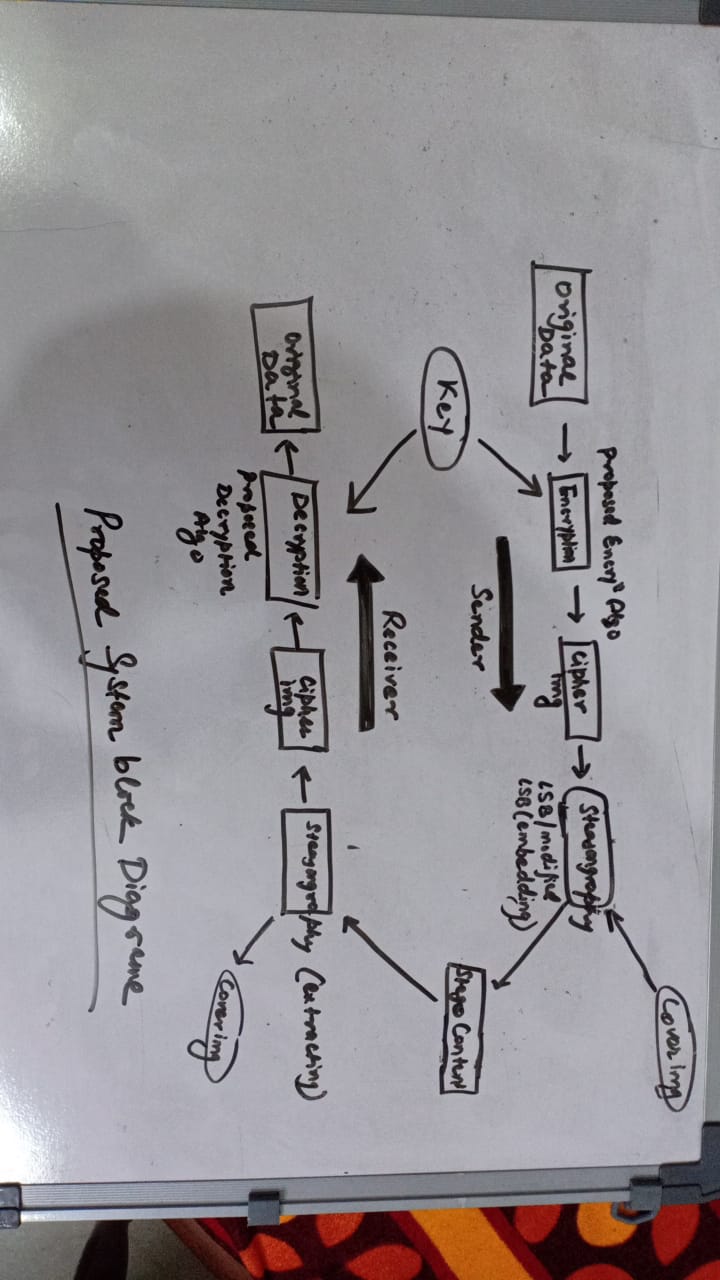 Cover img
Proposed Encryⁿ Algo
Original
Data
Encryption
Cipher
img
Steganography
LSB/modified
LSB (embedding)
Sender
Key
Stego Content
Receiver
Original
Data
Decryption
Cipher
img
Steganography (extracting)
Proposed
Decryption
Algo
Cover img
Proposed System block Diagrame